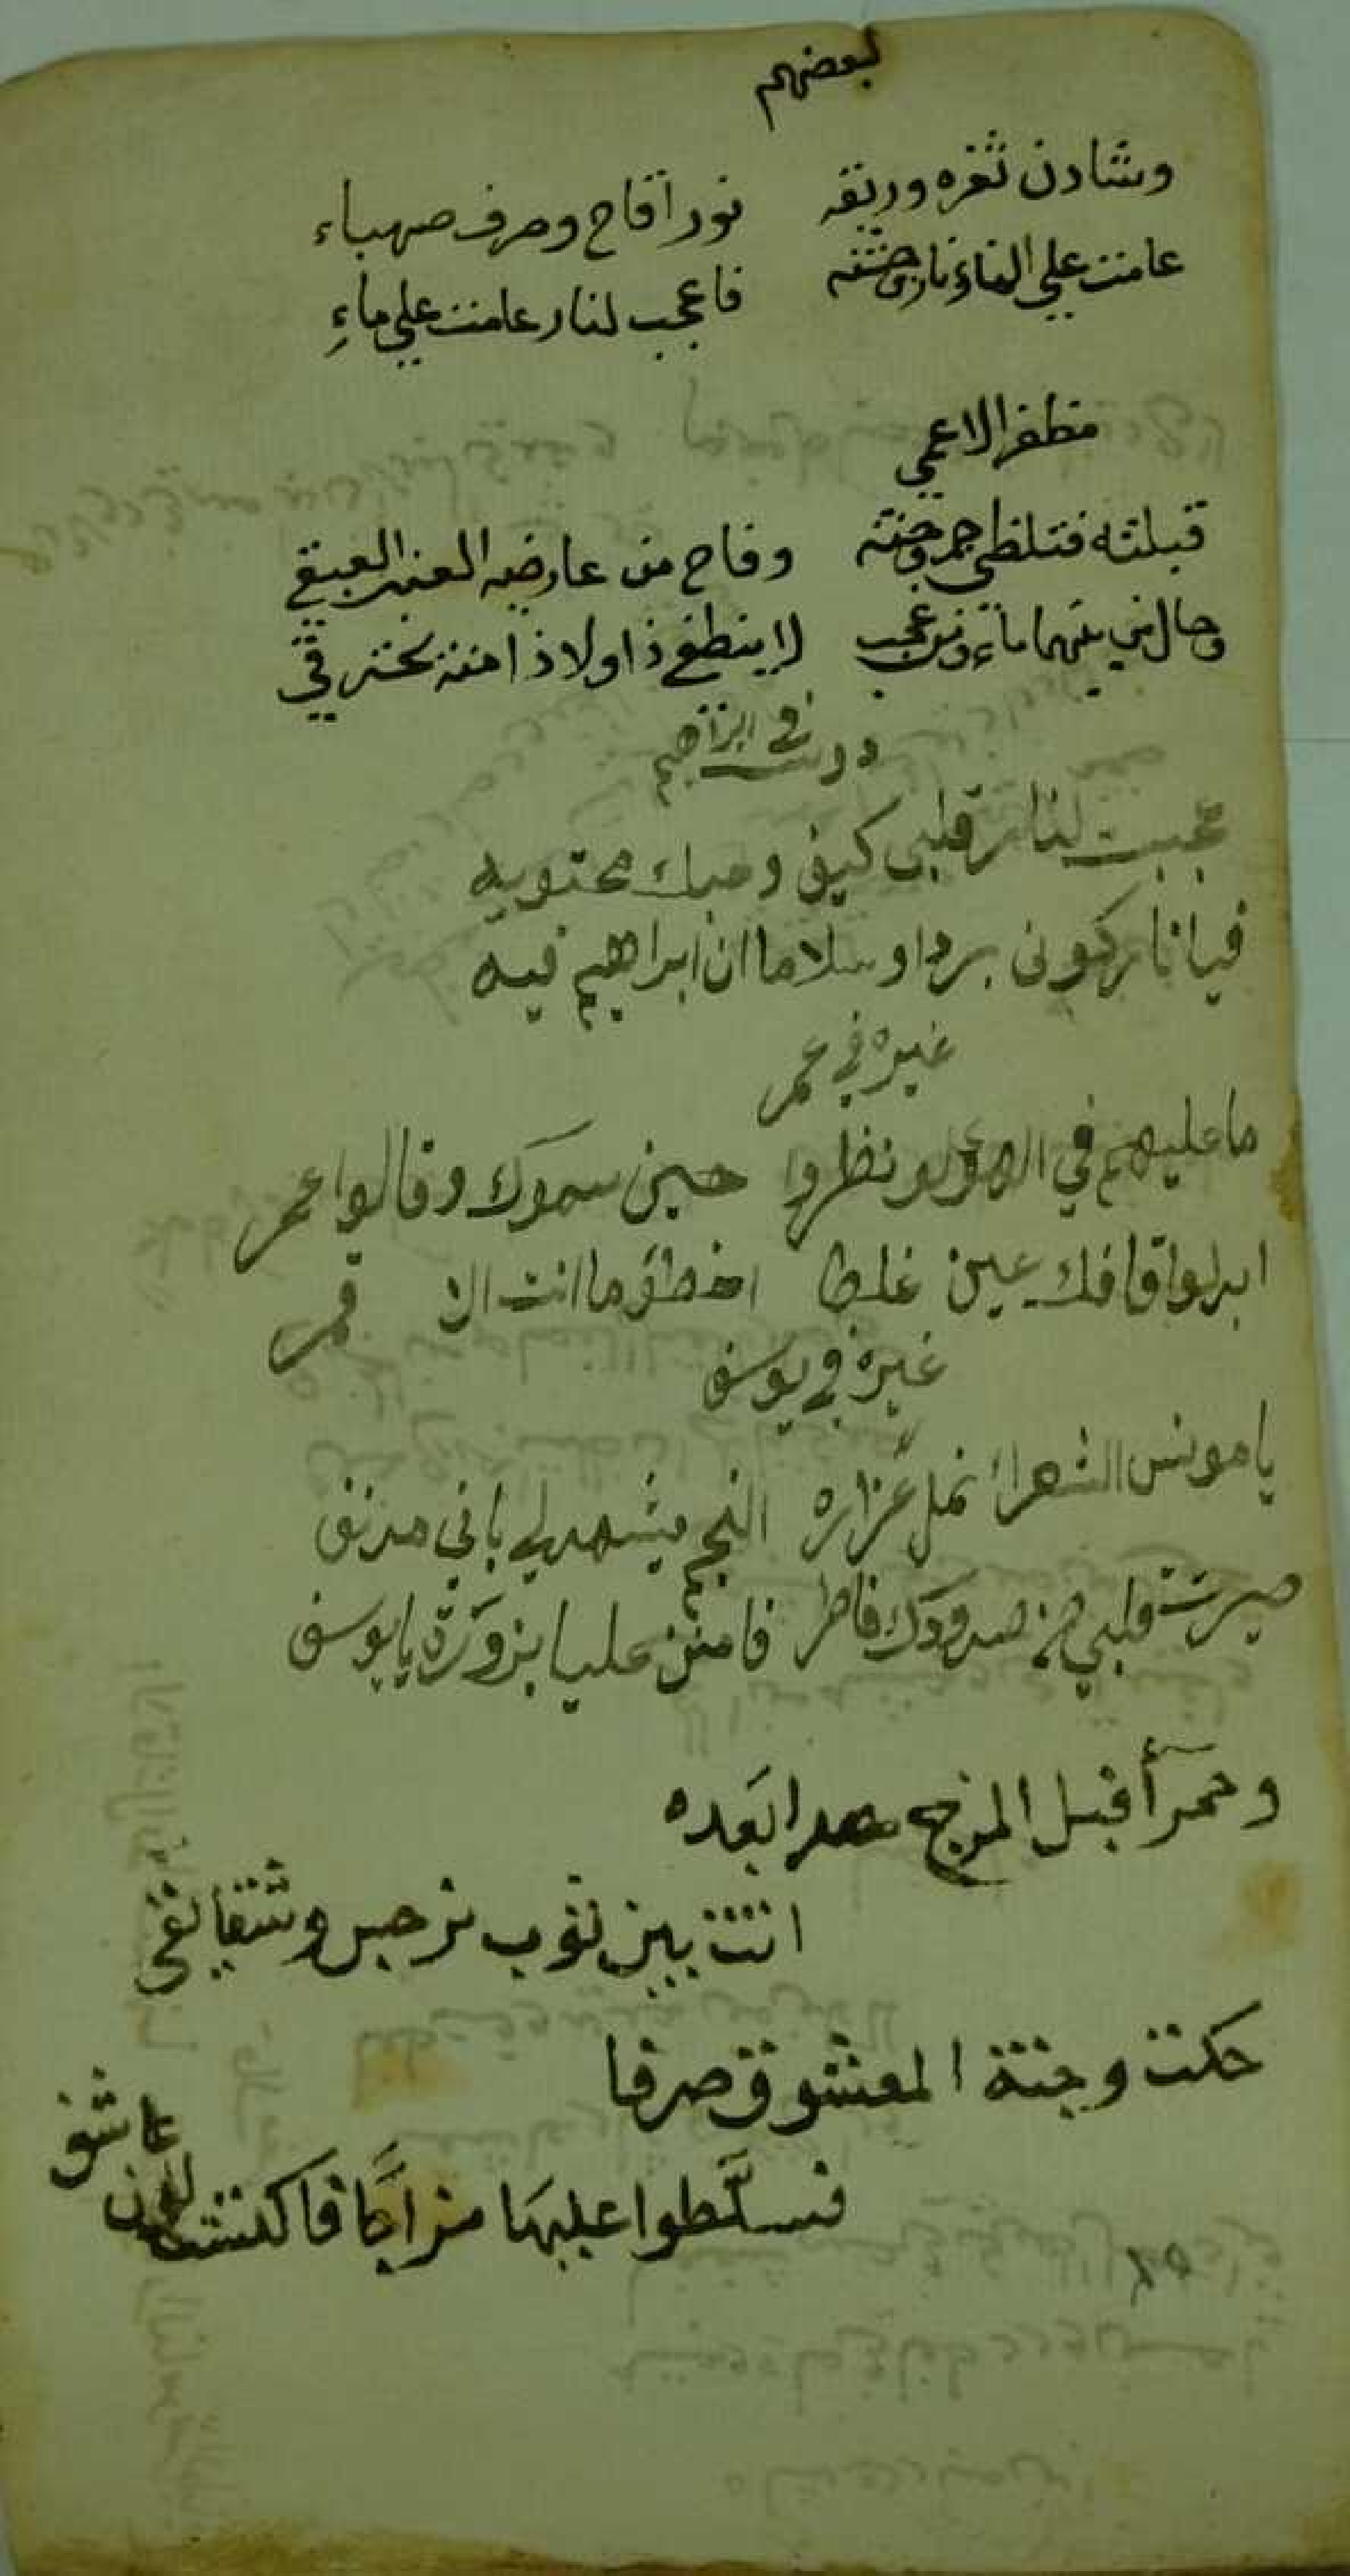 لبعضهم
وشادن ثغره وريقه نور اقاح وصرف صهباء
عامت علي الماء نار وجنته فاعجب لنار عامت علي ماءِ
مظفر الاعمي
قبلته فتلظي جمر وجنته وفاح من عارضه العنبر العبقي
وحال بينهما ماء ومن عجب لا ينطفي ذا ولا ذا منه يحترقي
في ابراهيم
عجبت لنار قلبي كيف وحبك محتويه
فيا نار كوني بردا وسلاما ان ابراهيم فيه
غيره في عمر
ما عليهم في الهوى لو نظروا حين سموك وقالوا عمر
ابدلوا قافك عين غلطا اخطؤ ما انت الا قمر
غيره في يوسف
يا مونس الشعراء نمل عذاره النجم يشهد لي باني مدنف
صيرت قلبي من صدودك فاطر فامنن عليا بزورة يا يوسف
وحمرآ قبل المزج صفرا بَعده
اتت بين ثوب نرجس وشقايقي
حكت وجنة المعشوق صرفا
فسلَّطوا عليها مزاجًا فاكتست لون عاشق